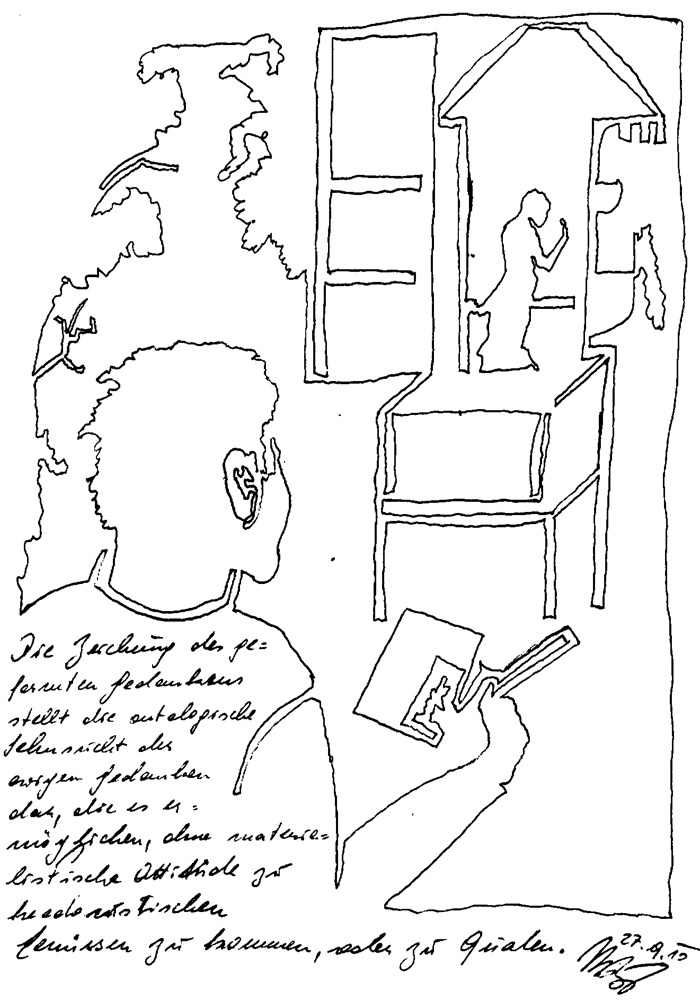 Die Zeichnung des ge=
formten Gedankens
stellt die ontologische
Sehnsucht der
ewigen Gedanken
dar, die es er=
möglichen, ohne materia=
listische Attitüde zu
hedonistischen
Genüssen zu kommen, oder zu Qualen.
27.9.15